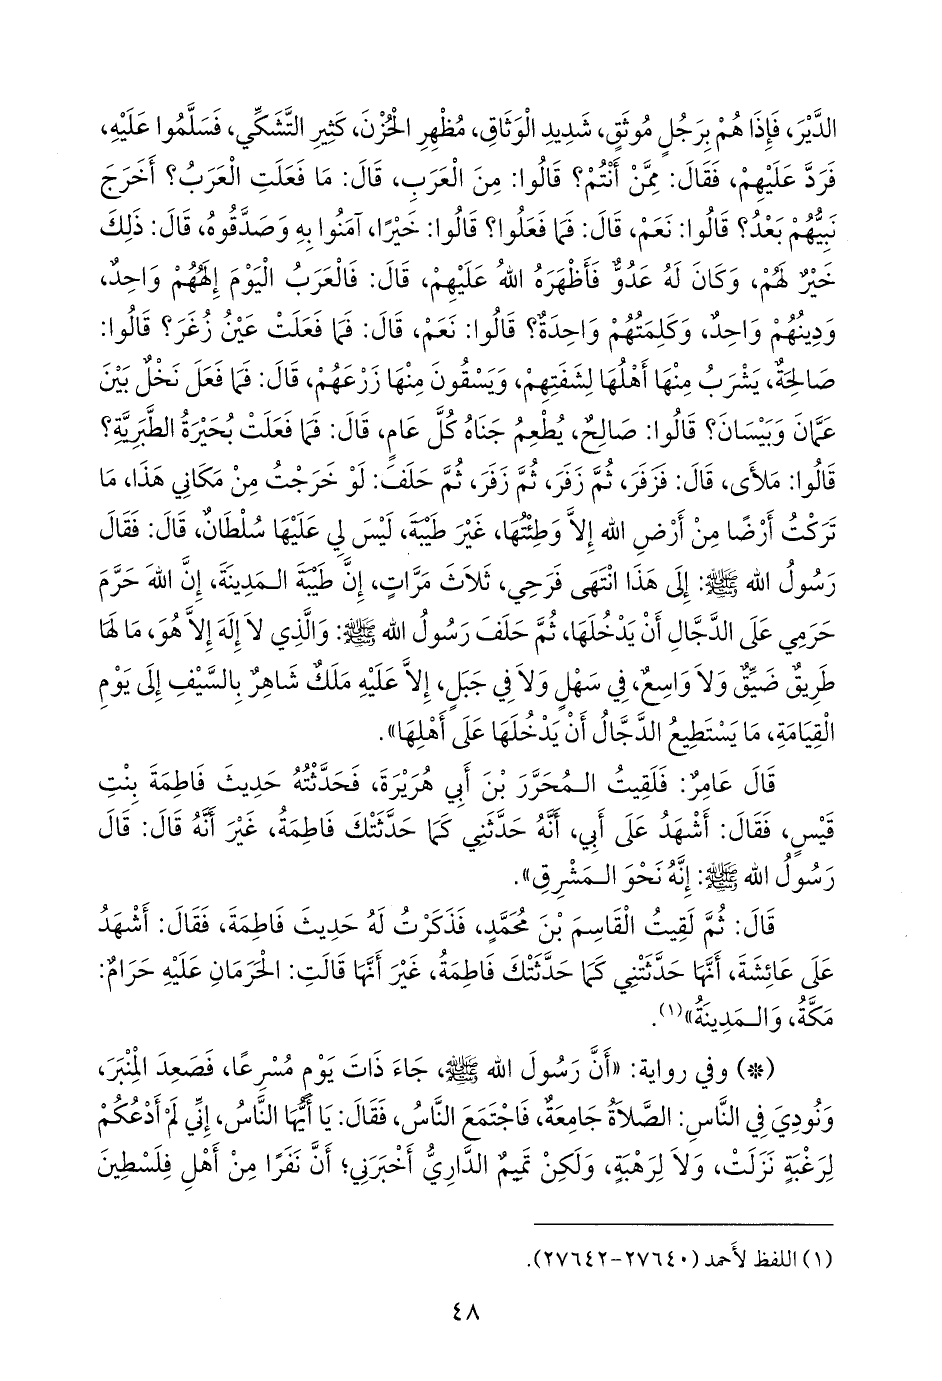 الدَّيْرَ، فَإِذَا هُمْ بِرَجُلٍ مُوثَقٍ، شَدِيدِ الْوَثَاقِ، مُظْهِرِ الْحُزْنِ، كَثِيرِ التَّشَكِّي، فَسَلَّمُوا عَلَيْهِ،
فَرَدَّ عَلَيْهِمْ، فَقَالَ: مِمَّنْ أَنْتُمْ؟ قَالُوا: مِنَ الْعَرَبِ، قَالَ: مَا فَعَلَتِ الْعَرَبُ؟ أَخَرَجَ
نَبِيُّهُمْ بَعْدُ؟ قَالُوا: نَعَمْ، قَالَ: فَمَا فَعَلُوا؟ قَالُوا: خَيْرًا، آمَنُوا بِهِ وَصَدَّقُوهُ، قَالَ: ذَلِكَ
خَيْرٌ لَهُمْ، وَكَانَ لَهُ عَدُوٌّ فَأَظْهَرَهُ اللهُ عَلَيْهِمْ، قَالَ: فَالْعَرَبُ الْيَوْمَ إِلَهُهُمْ وَاحِدٌ،
وَدِينُهُمْ وَاحِدٌ، وَكَلِمَتُهُمْ وَاحِدَةٌ؟ قَالُوا: نَعَمْ، قَالَ: فَمَا فَعَلَتْ عَيْنُ زُغَرَ؟ قَالُوا:
صَالِحَةٌ، يَشْرَبُ مِنْهَا أَهْلُهَا لِشَفَتِهِمْ، وَيَسْقُونَ مِنْهَا زَرْعَهُمْ، قَالَ: فَمَا فَعَلَ نَخْلٌ بَيْنَ
عَمَّانَ وَبَيْسَانَ؟ قَالُوا: صَالِحٌ، يُطْعِمُ جَنَاهُ كُلَّ عَامٍ، قَالَ: فَمَا فَعَلَتْ بُحَيْرَةُ الطَّبَرِيَّةِ؟
قَالُوا: مَلأَى، قَالَ: فَزَفَرَ، ثُمَّ زَفَرَ، ثُمَّ زَفَرَ، ثُمَّ حَلَفَ: لَوْ خَرَجْتُ مِنْ مَكَانِي هَذَا، مَا
تَرَكْتُ أَرْضًا مِنْ أَرْضِ اللهِ إِلاَّ وَطِئْتُهَا، غَيْرَ طَيْبَةَ، لَيْسَ لِي عَلَيْهَا سُلْطَانٌ، قَالَ: فَقَالَ
رَسُولُ اللهِ ﷺ: إِلَى هَذَا انْتَهَى فَرَحِي، ثَلاَثَ مَرَّاتٍ، إِنَّ طَيْبَةَ الـمَدِينَةَ، إِنَّ اللهَ حَرَّمَ
حَرَمِي عَلَى الدَّجَّالِ أَنْ يَدْخُلَهَا، ثُمَّ حَلَفَ رَسُولُ اللهِ ﷺ: وَالَّذِي لاَ إِلَهَ إِلاَّ هُوَ، مَا لَهَا
طَرِيقٌ ضَيِّقٌ وَلاَ وَاسِعٌ، فِي سَهْلٍ وَلاَ فِي جَبَلٍ، إِلاَّ عَلَيْهِ مَلَكٌ شَاهِرٌ بِالسَّيْفِ إِلَى يَوْمِ
الْقِيَامَةِ، مَا يَسْتَطِيعُ الدَّجَّالُ أَنْ يَدْخُلَهَا عَلَى أَهْلِهَا».
قَالَ عَامِرٌ: فَلَقِيتُ الـمُحَرَّرَ بْنَ أَبِي هُرَيْرَةَ، فَحَدَّثْتُهُ حَدِيثَ فَاطِمَةَ بِنْتِ
قَيْسٍ، فَقَالَ: أَشْهَدُ عَلَى أَبِي، أَنَّهُ حَدَّثَنِي كَمَا حَدَّثَتْكَ فَاطِمَةُ، غَيْرَ أَنَّهُ قَالَ: قَالَ
رَسُولُ اللهِ ﷺ: إِنَّهُ نَحْوَ الـمَشْرِقِ».
قَالَ: ثُمَّ لَقِيتُ الْقَاسِمَ بْنَ مُحَمَّدٍ، فَذَكَرْتُ لَهُ حَدِيثَ فَاطِمَةَ، فَقَالَ: أَشْهَدُ
عَلَى عَائِشَةَ، أَنَّهَا حَدَّثَتْنِي كَمَا حَدَّثَتْكَ فَاطِمَةُ، غَيْرَ أَنَّهَا قَالَتِ: الْحَرَمَانِ عَلَيْهِ حَرَامٌ:
مَكَّةُ، وَالـمَدِينَةُ»(١).
(*) وفي رواية: «أَنَّ رَسُولَ اللهِ ﷺ، جَاءَ ذَاتَ يَوْمٍ مُسْرِعًا، فَصَعِدَ الْمِنْبَرَ،
وَنُودِيَ فِي النَّاسِ: الصَّلاَةُ جَامِعَةٌ، فَاجْتَمَعَ النَّاسُ، فَقَالَ: يَا أَيُّهَا النَّاسُ، إِنِّي لَمْ أَدْعُكُمْ
لِرَغْبَةٍ نَزَلَتْ، وَلاَ لِرَهْبَةٍ، وَلَكِنْ تَمِيمٌ الدَّارِيُّ أَخْبَرَنِي؛ أَنَّ نَفَرًا مِنْ أَهْلِ فِلَسْطِينَ
(١) اللفظ لأَحمد (٢٧٦٤٠-٢٧٦٤٢).
٤٨